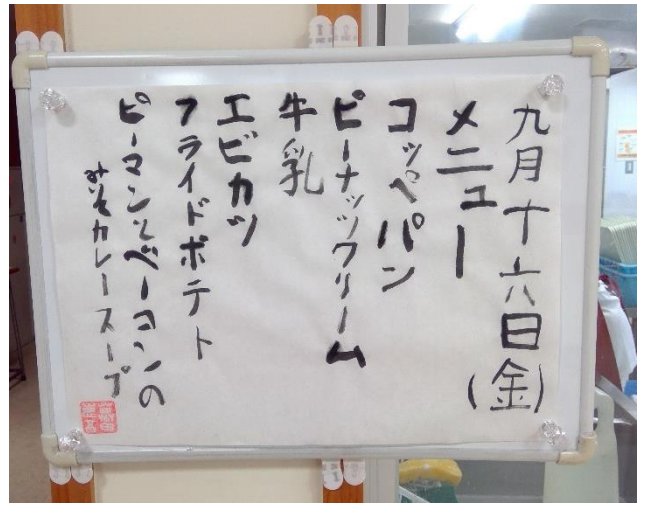 九月十六日(金)
メニュー
コッペパン
ピーナッツクリーム
牛乳
エビカツ
フライドポテト
ピーマンとベーコンの
みそカレースープ